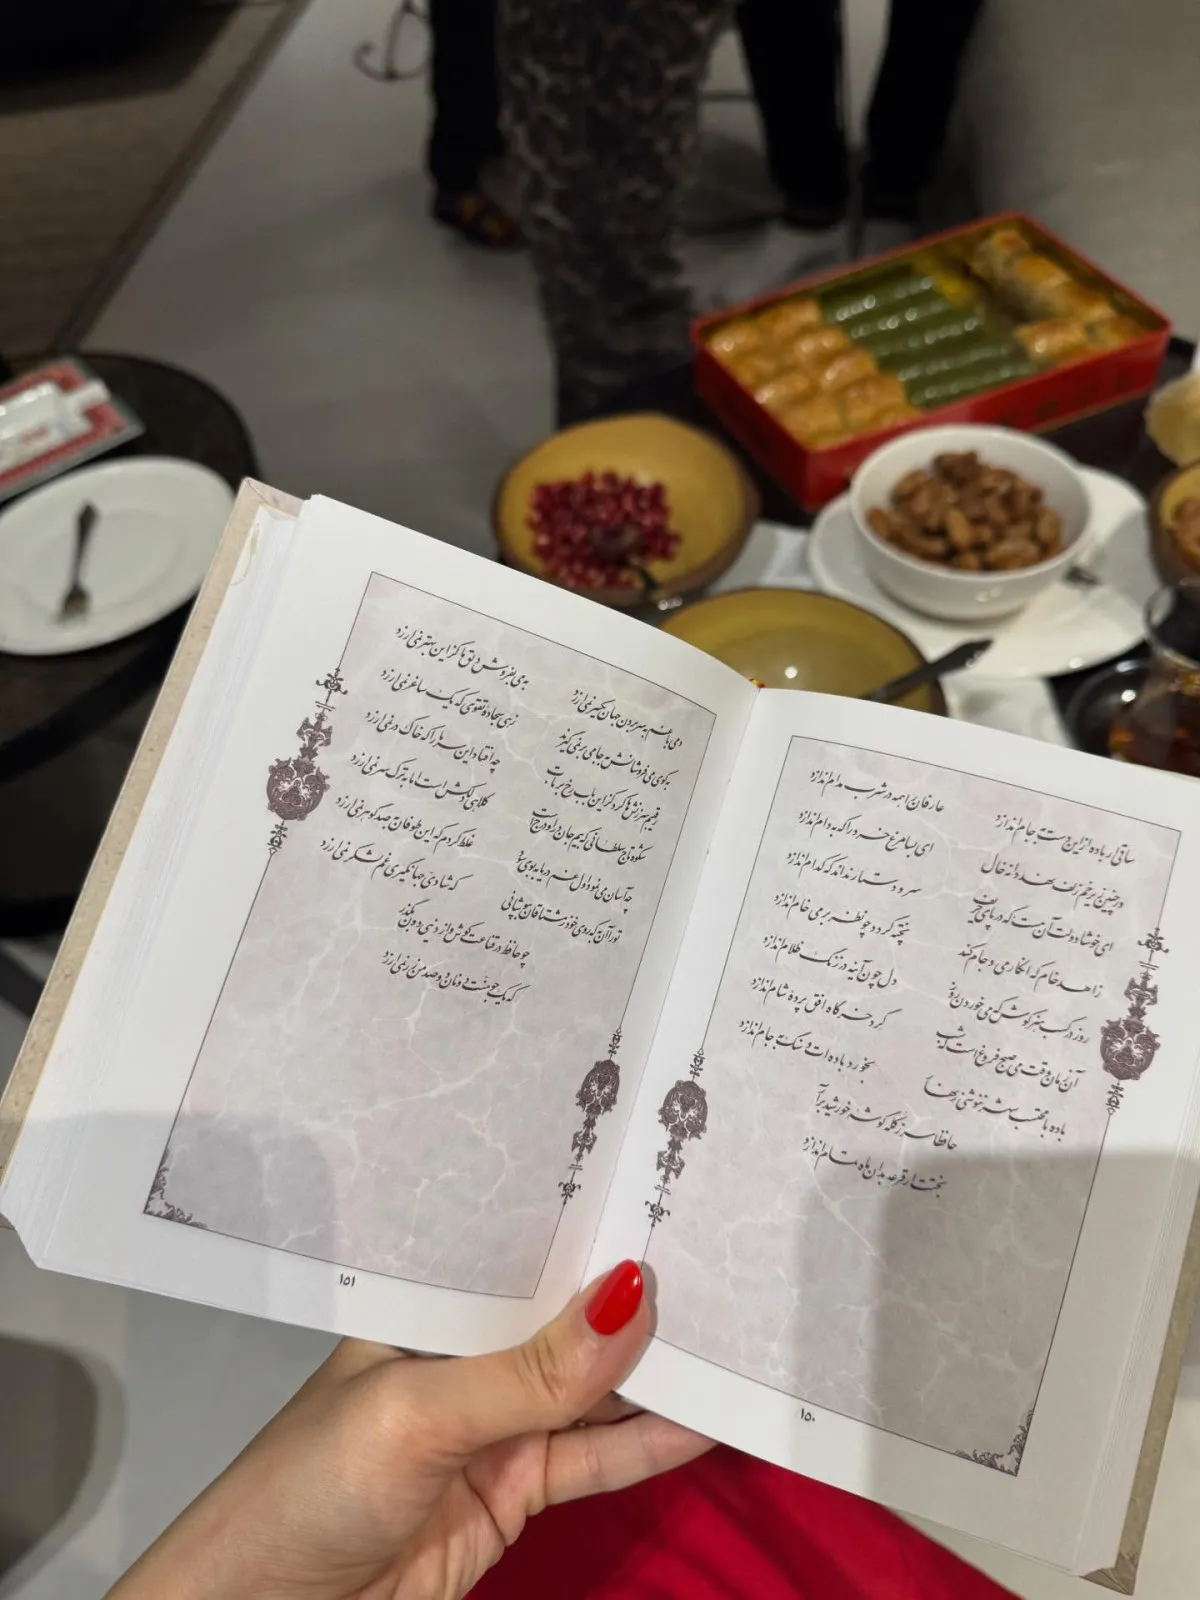 ساقی ار باده از این دست به جام اندازد عارفان را همه در شرب مدام اندازد
ور چنین زیر خم زلف نهد دانه خال ای بسا مرغ خرد را که به دام اندازد
ای خوشا دولت آن مست که در پای حریف سر و دستار نداند که کدام اندازد
زاهد خام که انکار می و جام کند پخته گردد چو نظر بر می خام اندازد
روز در کسب هنر کوش که می خوردن روز دل چون آینه در زنگ ظلام اندازد
آن زمان وقت می صبح فروغ است که شب گرد خرگاه افق پردهٔ شام اندازد
باده با محتسب شهر ننوشی زنهار بخورد باده‌ات و سنگ به جام اندازد
حافظا سر ز کله گوشه خورشید برآر
بختت ار قرعه بدان ماه تمام اندازد
۱۵۰
دمی با غم به سر بردن جهان یکسر نمی‌ارزد به می بفروش دلق ما کز این بهتر نمی‌ارزد
به کوی می فروشانش به جامی بر نمی‌گیرند زهی سجاده تقوی که یک ساغر نمی‌ارزد
رقیبم سرزنش‌ها کرد کز این باب رخ برتاب چه افتاد این سر ما را که خاک در نمی‌ارزد
شکوه تاج سلطانی که بیم جان در او درج است کلاهی دلکش است اما به ترک سر نمی‌ارزد
چه آسان می‌نمود اول غم دریا به بوی سود غلط کردم که این طوفان به صد گوهر نمی‌ارزد
تو را آن به که روی خود ز مشتاقان بپوشانی که شادی جهانگیری غم لشکر نمی‌ارزد
چو حافظ در قناعت کوش و از دنیی دون بگذر
که یک جو منت دونان دو صد من زر نمی‌ارزد
۱۵۱